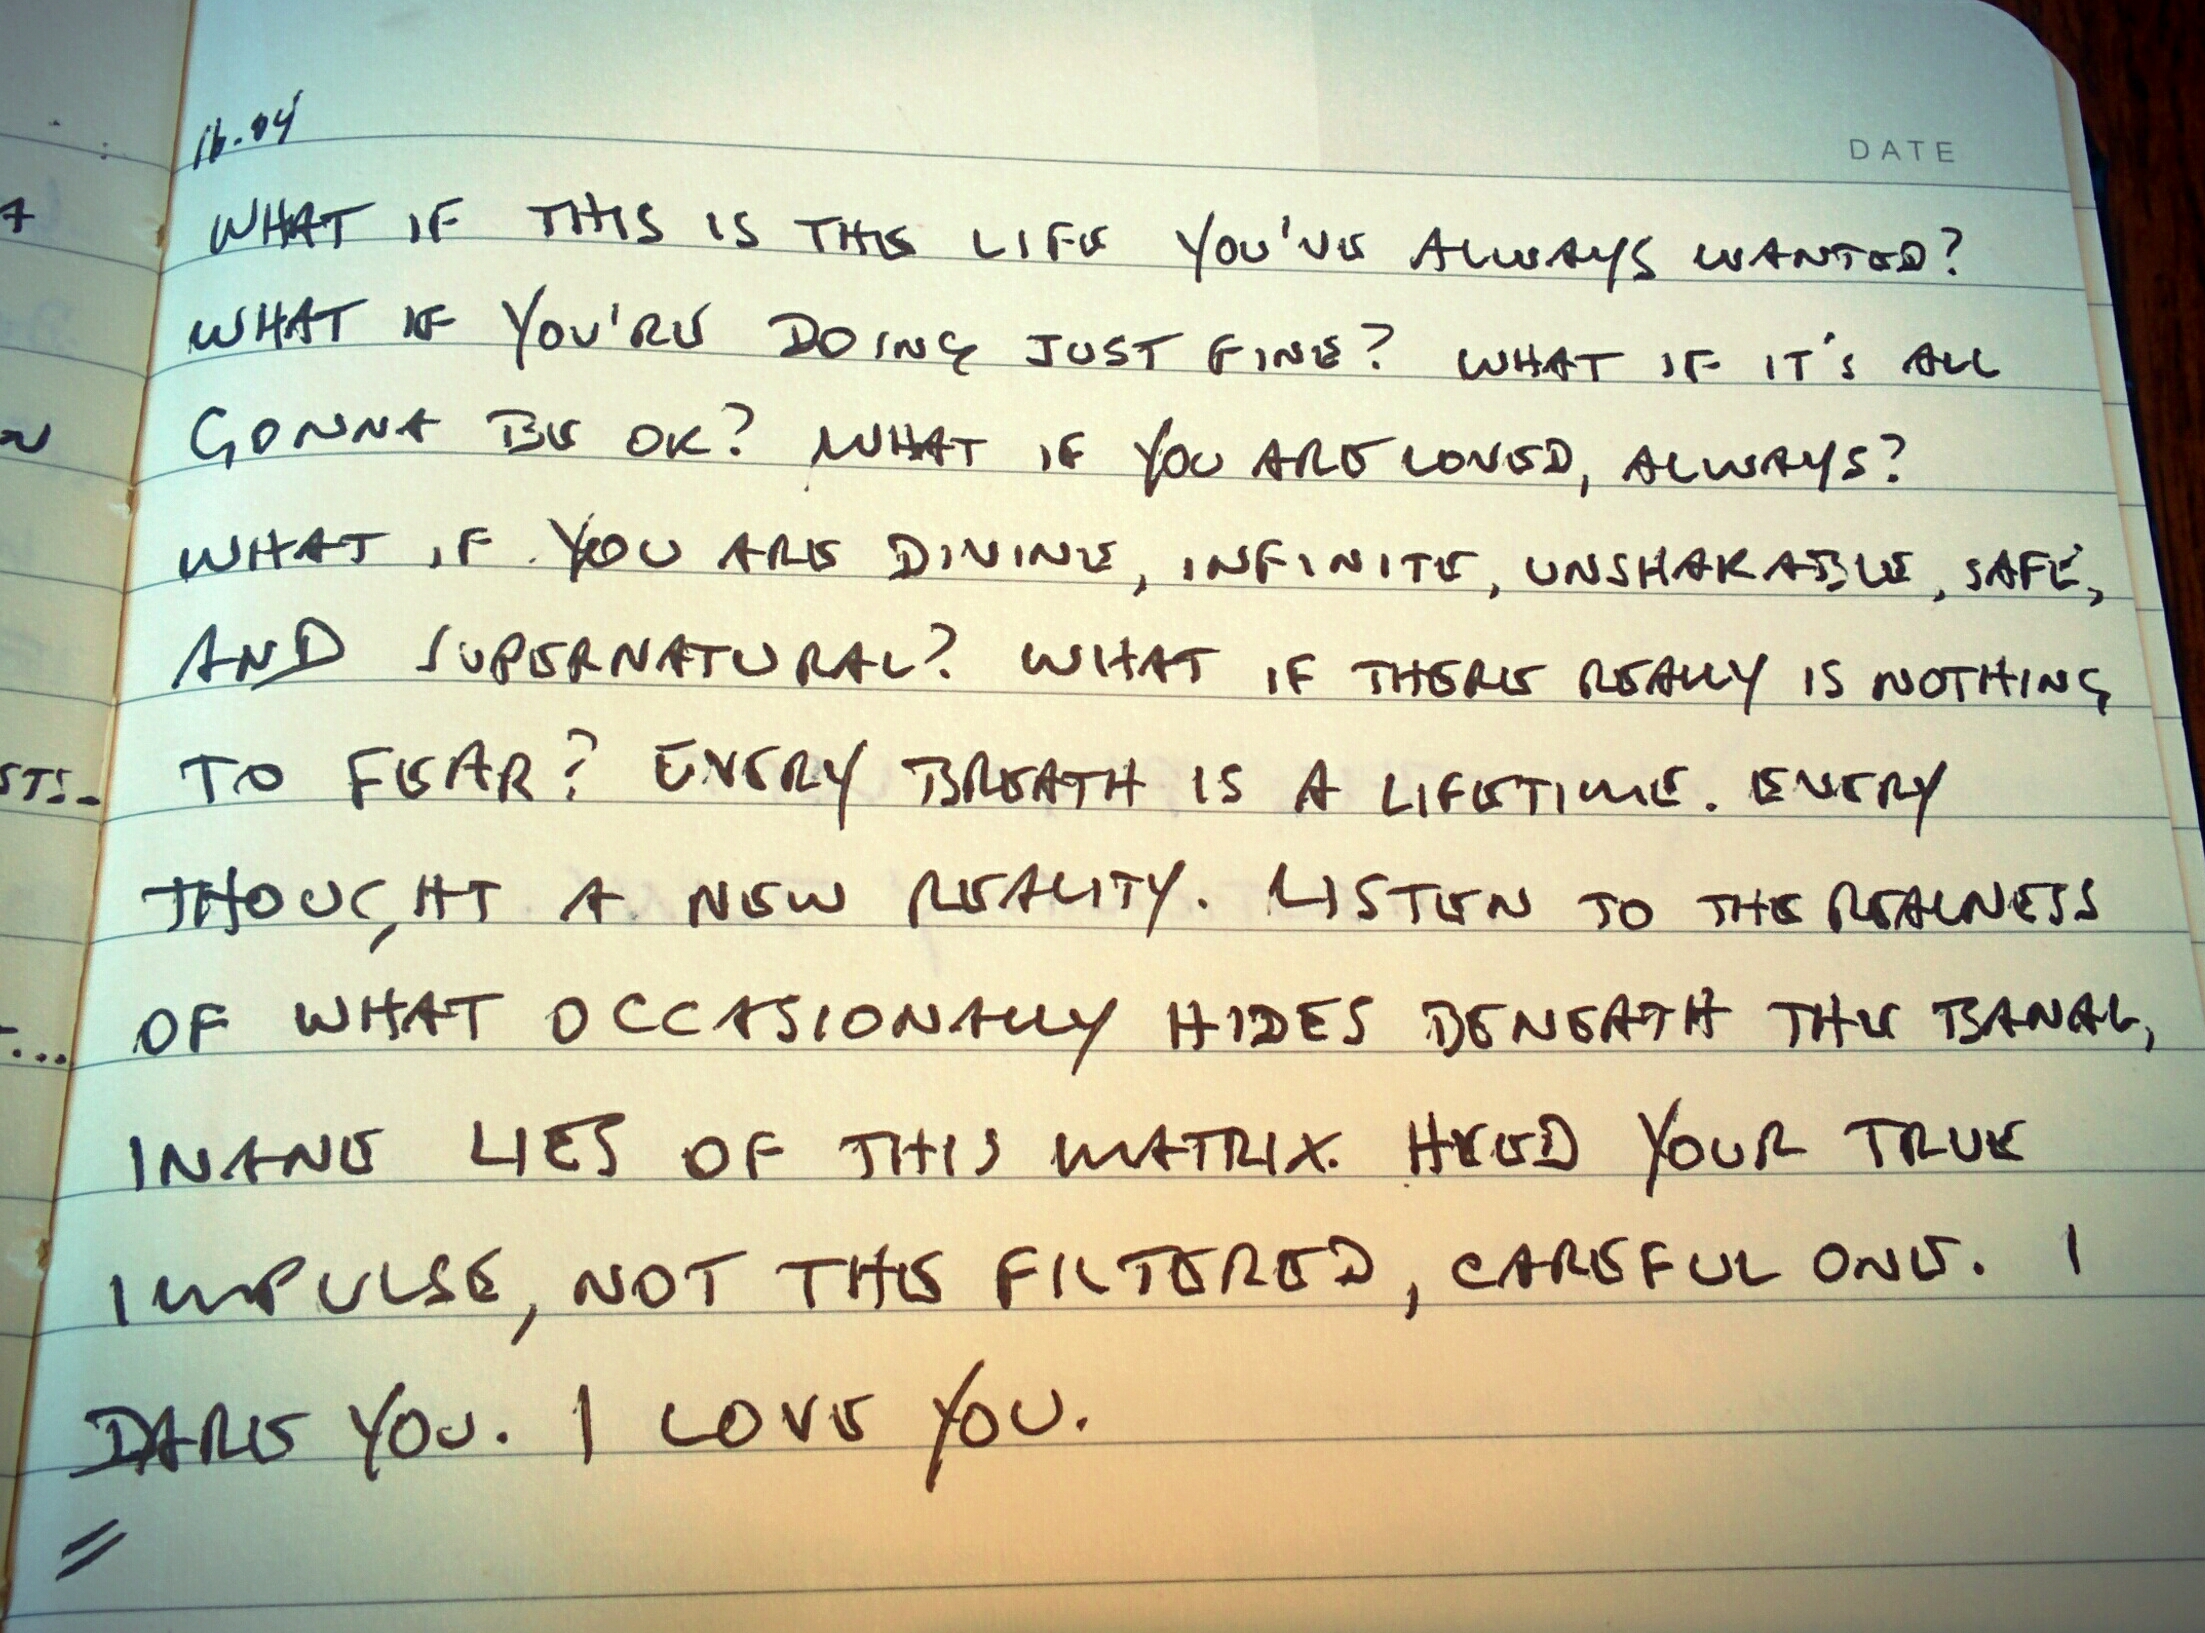 16.04
DATE
WHAT IF THIS IS THE LIFE YOU'VE ALWAYS WANTED?
WHAT IF YOU'RE DOING JUST FINE? WHAT IF IT'S ALL
GONNA BE OK? WHAT IF YOU ARE LOVED, ALWAYS?
WHAT IF YOU ARE DIVINE, INFINITE, UNSHAKABLE, SAFE,
AND SUPERNATURAL? WHAT IF THERE REALLY IS NOTHING
TO FEAR? EVERY BREATH IS A LIFETIME. EVERY
THOUGHT A NEW REALITY. LISTEN TO THE REALNESS
OF WHAT OCCASIONALLY HIDES BENEATH THE BANAL,
INANE LIES OF THIS MATRIX. HEED YOUR TRUE
IMPULSE, NOT THE FILTERED, CAREFUL ONE. I
DARE YOU. I LOVE YOU.